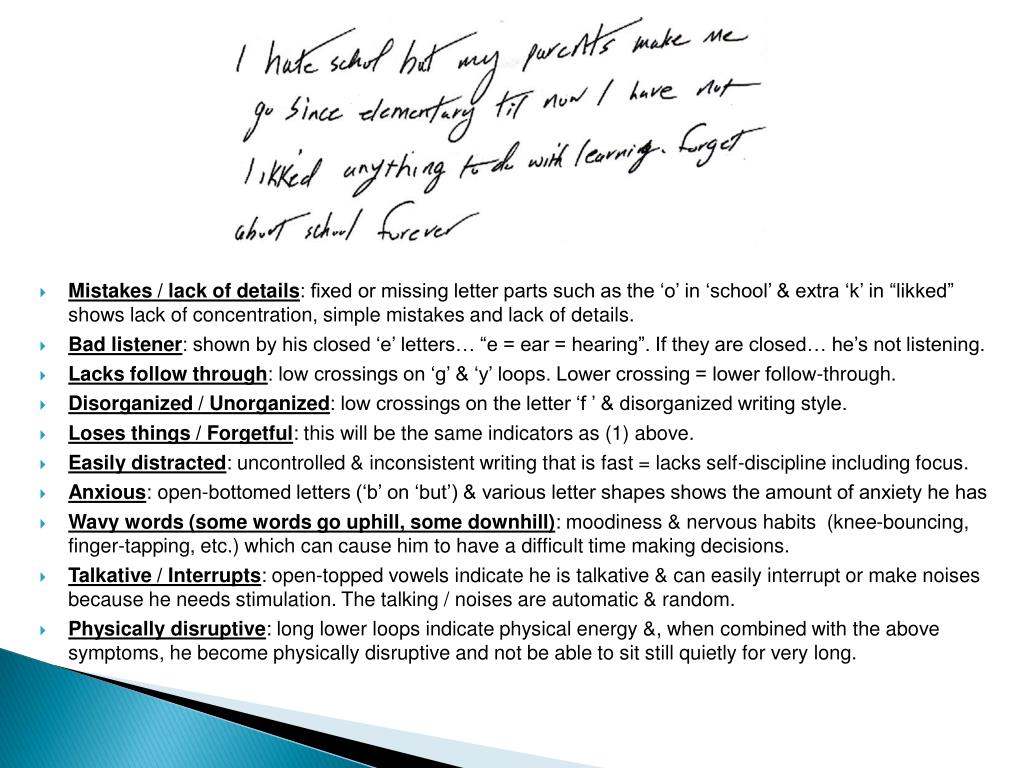 I hate schol but my parents make me
go since elementary til now I have not
likked anything to do with learnig. forget
about school forever
Mistakes / lack of details: fixed or missing letter parts such as the ‘o’ in ‘school’ & extra ‘k’ in “likked”
shows lack of concentration, simple mistakes and lack of details.
Bad listener: shown by his closed ‘e’ letters… “e = ear = hearing”. If they are closed… he’s not listening.
Lacks follow through: low crossings on ‘g’ & ‘y’ loops. Lower crossing = lower follow-through.
Disorganized / Unorganized: low crossings on the letter ‘f ’ & disorganized writing style.
Loses things / Forgetful: this will be the same indicators as (1) above.
Easily distracted: uncontrolled & inconsistent writing that is fast = lacks self-discipline including focus.
Anxious: open-bottomed letters (‘b’ on ‘but’) & various letter shapes shows the amount of anxiety he has
Wavy words (some words go uphill, some downhill): moodiness & nervous habits (knee-bouncing,
finger-tapping, etc.) which can cause him to have a difficult time making decisions.
Talkative / Interrupts: open-topped vowels indicate he is talkative & can easily interrupt or make noises
because he needs stimulation. The talking / noises are automatic & random.
Physically disruptive: long lower loops indicate physical energy &, when combined with the above
symptoms, he become physically disruptive and not be able to sit still quietly for very long.